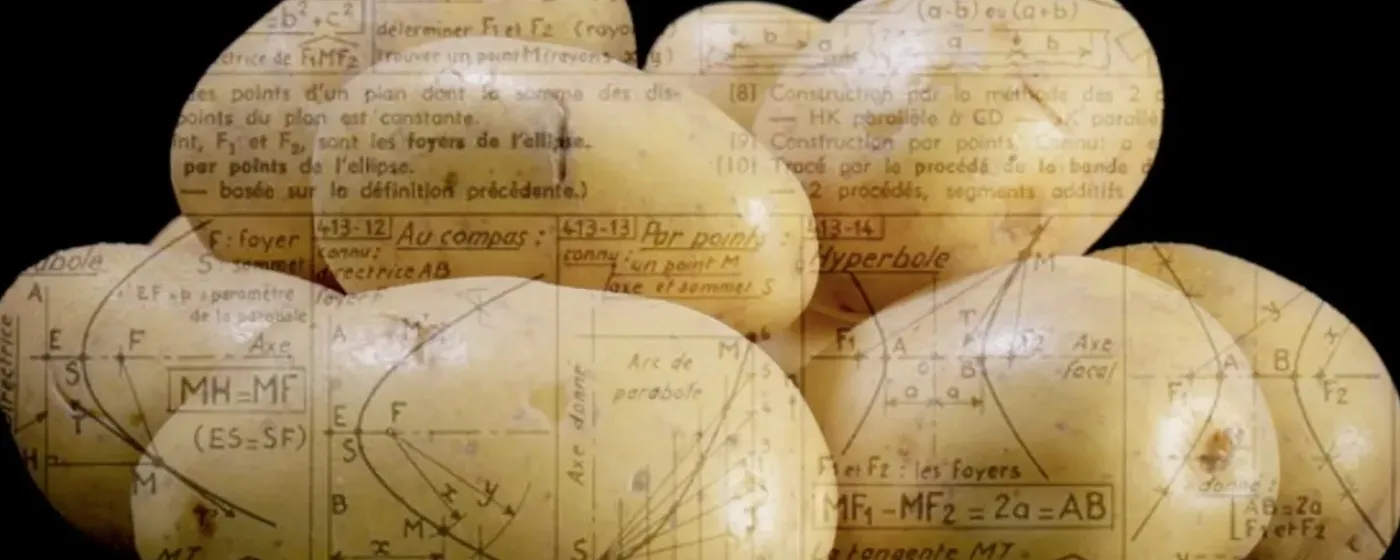 =b²+c²
déterminer F₁ et F₂ (rayo
(a-b) ou (a+b)
ctrice de F₁MF₂
Trouver un point M (rayons x, y)
b a
a b
des points d'un plan dont la somme des dis-
points du plan est constante.
int, F₁ et F₂, sont les foyers de l'ellipse.
par points de l'ellipse.
— basée sur la définition précédente.)
[8] Construction par la méthode des 2 c
— HK parallèle à CD — K parallè
[9] Construction par points. Connu: a e
[10] Tracé par le procédé de la bande d
— 2 procédés, segments additifs
abole
F : foyer
S : sommet
413-12 Au compas :
connu:
directrice AB
foyer F
413-13 Par points :
connu:
un point M
axe et sommet S
413-14
Hyperbole
A
EF = p = paramètre
de la parabole.
directrice
E F Axe
S
MH=MF
T
(ES=SF)
H
M
T'
MT
A M'
E F
S
B x y
M
x
Axe donné
Arc de
parabole
M 6
5
4
3
S
M
T
F₁ A F F2 Axe
O B focal
a a
F₁ et F2 : les foyers
MF₁ - MF₂ = 2a = AB
La tangente MT
y
x
A B
F₁ F2
M
donné:
AB=2a
F₁ et F2